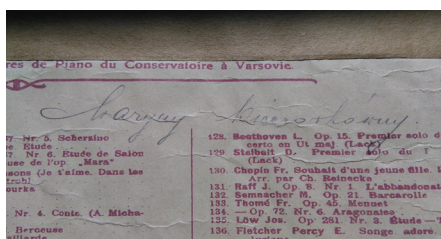 res de Piano du Conservatoire à Varsovie.
37 Nr. 5. Scherzino
ne. Etude
37 Nr. 6. Etude de Salon
use de l'op. „Mara"
sons (Je t'aime. Dans les
ourka
Nr. 4. Conte. (A. Micha-
Berceuse
128. Beethoven L. Op. 15. Premier solo d
certo en Ut maj. (Lack)
129. Steibelt D. Premier solo du
(Lack)
130. Chopin Fr. Souhait d'une jeune fille.
Arr. par Ch. Reinecke
131. Raff J. Op. 8. Nr. 1. L'abbandonat
132. Semnacher M. Op. 21. Barcarolle
133. Thomé Fr. Op. 45. Menuet
134. — Op. 72. Nr. 6. Aragonaise
135. Löw Jos. Op. 281. Nr. 3. Etude
136. Fletcher Percy E. Songe adoré